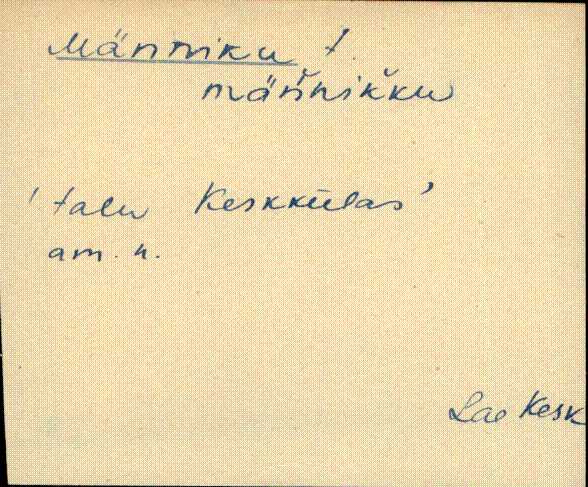 Männiku t.
männ̆ik̆ku
' talu Keskkülas '
am. n.
Lae Kesk